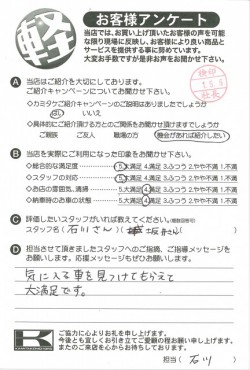 軽
お客様アンケート
当店では、お買い上げ頂いたお客様の声を可能
な限り現場に反映し、お客様により良い商品と
サービスを提供する事に努めています。
大変お手数ですが是非お声をお聞かせ下さい。
A 当店はご紹介を大切にしております。
ご紹介キャンペーンについてお聞かせ下さい。
・カミタケご紹介キャンペーンの説明はありましたでしょうか
はい いいえ
・具体的にご紹介頂ける方とのご関係をお聞かせ頂けますでしょうか
ご親族 ご友人 職場の方 機会があれば紹介したい
B 当店を実際にご利用になった印象をお聞かせ下さい。
・総合的な満足度 5.大満足 4.満足 3.ふつう 2.やや不満 1.不満
・スタッフの対応 5.大満足 4.満足 3.ふつう 2.やや不満 1.不満
・お店の雰囲気、清潔 5.大満足 4.満足 3.ふつう 2.やや不満 1.不満
・納車時のお車の状態 5.大満足 4.満足 3.ふつう 2.やや不満 1.不満
C 評価したいスタッフがいれば教えてください。(複数回答可)
スタッフ名( 石川さん )( 坂井さん )
D 担当させて頂きましたスタッフへのご指摘、ご指導メッセージを
お願いします。応援メッセージもぜひお願いします。
気に入る車を見つけてもらえて
大満足です。
K
ご協力に心よりお礼を申し上げます。
今後とも宜しくお引き立てご愛顧の程お願い申し上げます。
またのご来店を心からお待ちしております。
担当( 石川 )